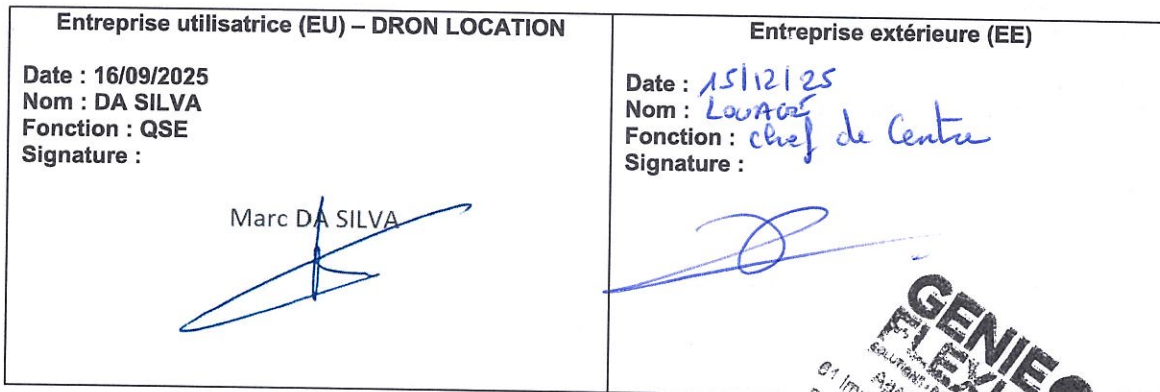 Entreprise utilisatrice (EU) – DRON LOCATION
Date : 16/09/2025
Nom : DA SILVA
Fonction : QSE
Signature :
Marc DA SILVA
Entreprise extérieure (EE)
Date : 15/12/25
Nom :
Fonction : chef de Centre
Signature :
GENIE
FLEXI